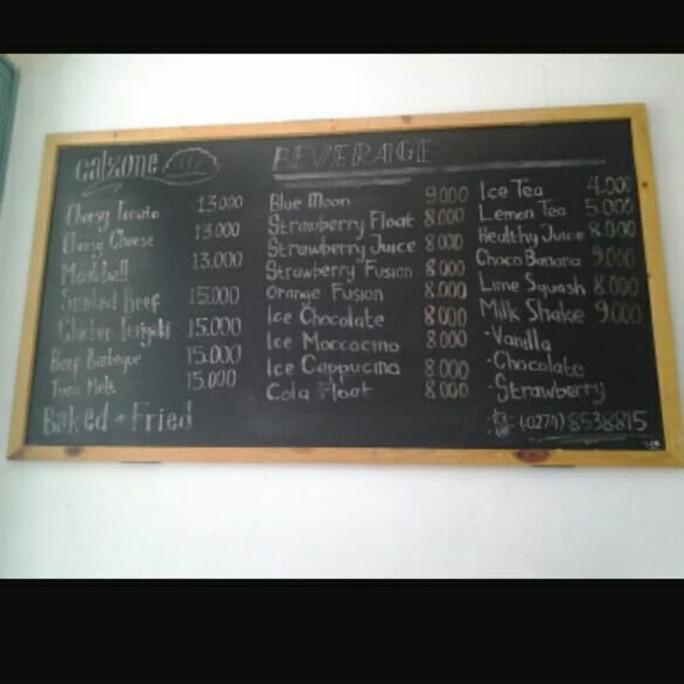 calzone
Cheesy Tomato 13.000
Cheesy Cheese 13.000
Meatball 13.000
Smoked Beef 15.000
Chicken Teriyaki 15.000
Beef Barbeque 15.000
Tuna Melt 15.000
Baked - Fried
BEVERAGE
Blue Moon 9.000
Strawberry Float 8.000
Strawberry Juice 8.000
Strawberry Fusion 8.000
Orange Fusion 8.000
Ice Chocolate 8.000
Ice Moccacino 8.000
Ice Cappucino 8.000
Cola Float 8.000
Ice Tea 4.000
Lemon Tea 5.000
Healthy Juice 8.000
Choco Banana 9.000
Lime Squash 8.000
Milk Shake 9.000
·Vanilla
·Chocolate
·Strawberry
: (0274) 8538815